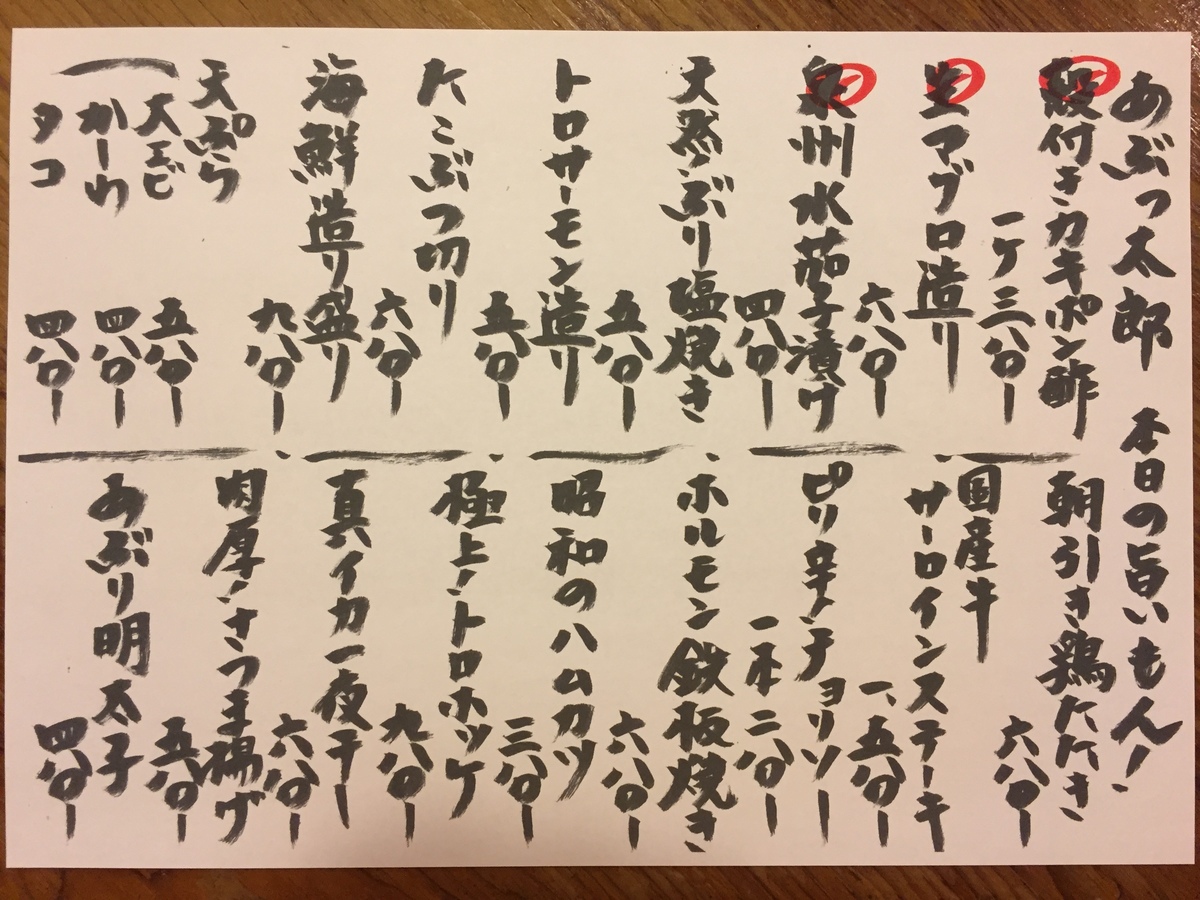 あぶっ太郎 本日の旨いもん!
殻付きカキポン酢
一ケ三八〇ー
生マグロ造り
六八〇ー
泉州水茄子漬け
四八〇ー
天然ぶり塩焼き
五八〇ー
トロサーモン造り
五八〇ー
たこぶつ切り
六八〇ー
海鮮造り盛り
九八〇ー
天ぷら
大エビ
五八〇ー
かーわ
四八〇ー
タコ
四八〇ー
朝引き鶏たたき
六八〇ー
国産牛
サーロインステーキ
一、五八〇ー
ピリ辛!チョリソー
一本二八〇ー
ホルモン鉄板焼き
六八〇ー
昭和のハムカツ
三八〇ー
極上!トロホッケ
九八〇ー
真イカ一夜干し
六八〇ー
肉厚!さつま揚げ
五八〇ー
あぶり明太子
四八〇ー